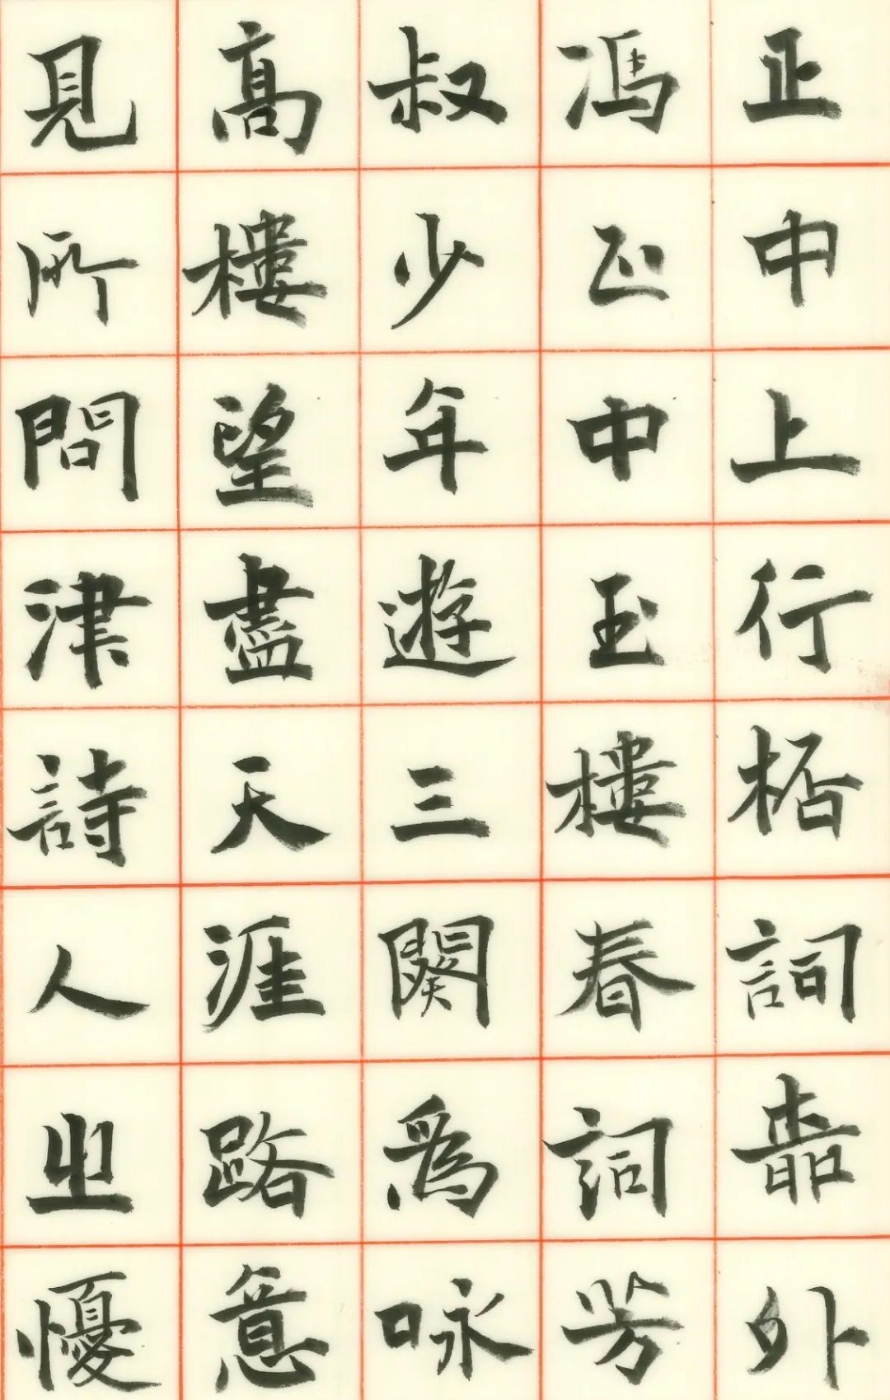 正中上行桮詞柳外
馮正中玉樓春詞芳
叔少年遊三闋為咏
高樓望盡天涯路意
見所問津詩人之憂